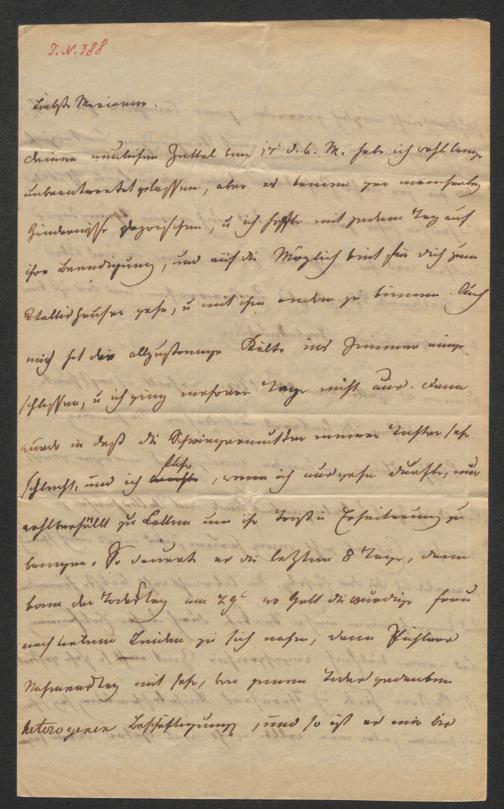 I. N. 388
Liebste Marianne.
Deinen neulichen Zettel vom 14 d. v. M. habe ich wohl lange
unbeantwortet gelassen, aber es kamen gar mancherley
Hindernisse dazwischen, u ich hoffte mit jedem Tag auf
ihre Beendigung, und auf die Möglichkeit für Dich zum
Wallishauser gehn, u mit ihm reden zu können. Auch
mich hat die allzustrenge Kälte ins Zimmer einge-
schlossen, u ich ging mehrere Tage nicht aus. Dann
wurde in deß die Schwiegermutter meiner Tochter sehr
schlecht, und ich , wenn ich ausgehn durfte, nur
zu Trost u Erheiterung zu
bringen. So dauerte es die letzten 8 Tage, dann
kam der Todestag am 29t wo Gott die würdige Frau
nach vielem Leiden zu sich nahm, dann
mit sehr, von jenem Todesgedanken
heterogenen Beschäftigungen, und so ist es mir bis